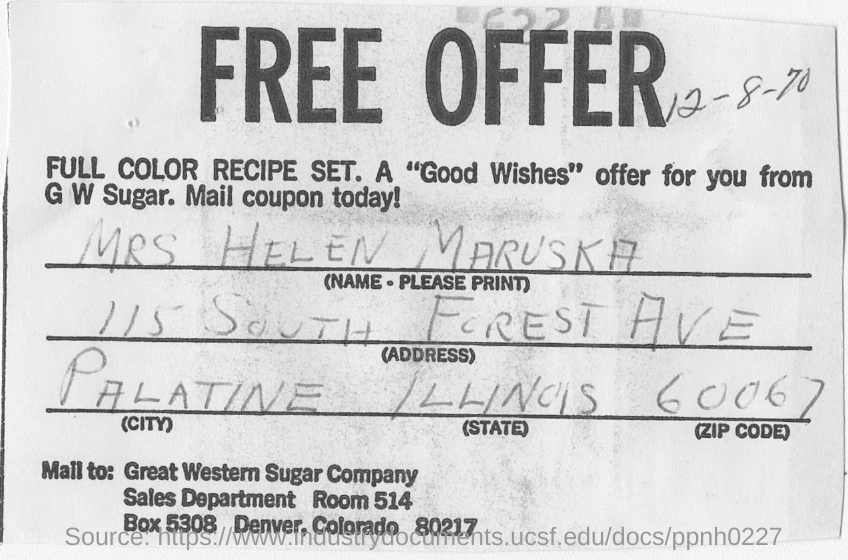 FREE OFFER
12-8-70
FULL COLOR RECIPE SET. A "Good Wishes" offer for you from
G W Sugar. Mail coupon today!
MRS HELEN MARUSKA
(NAME - PLEASE PRINT)
115 SOUTH FOREST AVE
(ADDRESS)
PALATINE ILLINOIS 60067
(CITY) (STATE) (ZIP CODE)
Mail to: Great Western Sugar Company
Sales Department Room 514
Box 5308 Denver, Colorado 80217
Source: https://www.industrydocuments.ucsf.edu/docs/ppnh0227